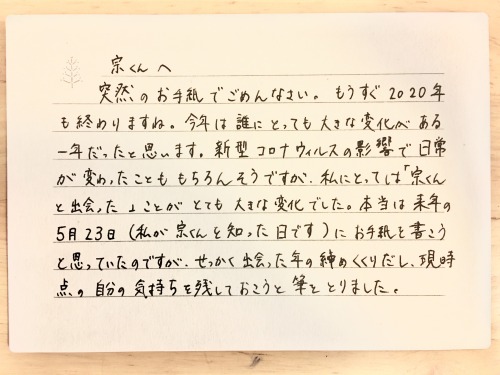 宗くんへ
突然のお手紙でごめんなさい。もうすぐ2020年
も終わりますね。今年は誰にとっても大きな変化がある
一年だったと思います。新型コロナウィルスの影響で日常
が変わったことももちろんそうですが、私にとっては「宗くん
と出会った」ことがとても大きな変化でした。本当は来年の
5月23日(私が宗くんを知った日です)にお手紙を書こう
と思っていたのですが、せっかく出会った年の締めくくりだし、現時
点の自分の気持ちを残しておこうと筆をとりました。